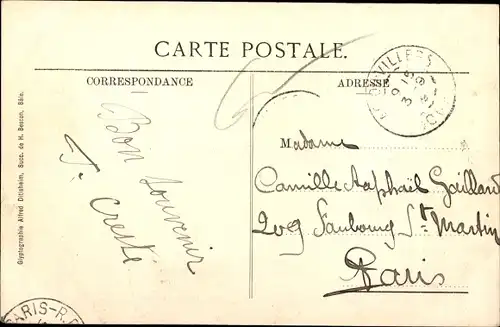 CARTE POSTALE.
CORRESPONDANCE
ADRESSE
Bon souvenir
Madame
Camille Raphaël Gaillard
209 Faubourg St Martin
Paris
Glyptographie Alfred Ditisheim, Succ. de H. Besson, Bâle.
PARIS-R.P
VILLERS